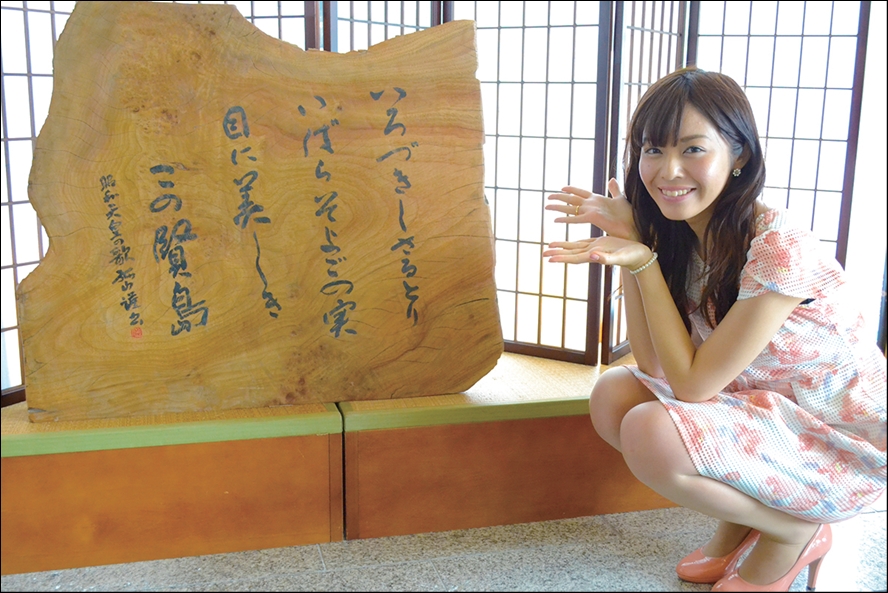 いろづきしさるとり
いばらそよごの実
目に美しき
この賢島
昭和天皇の歌 謹書